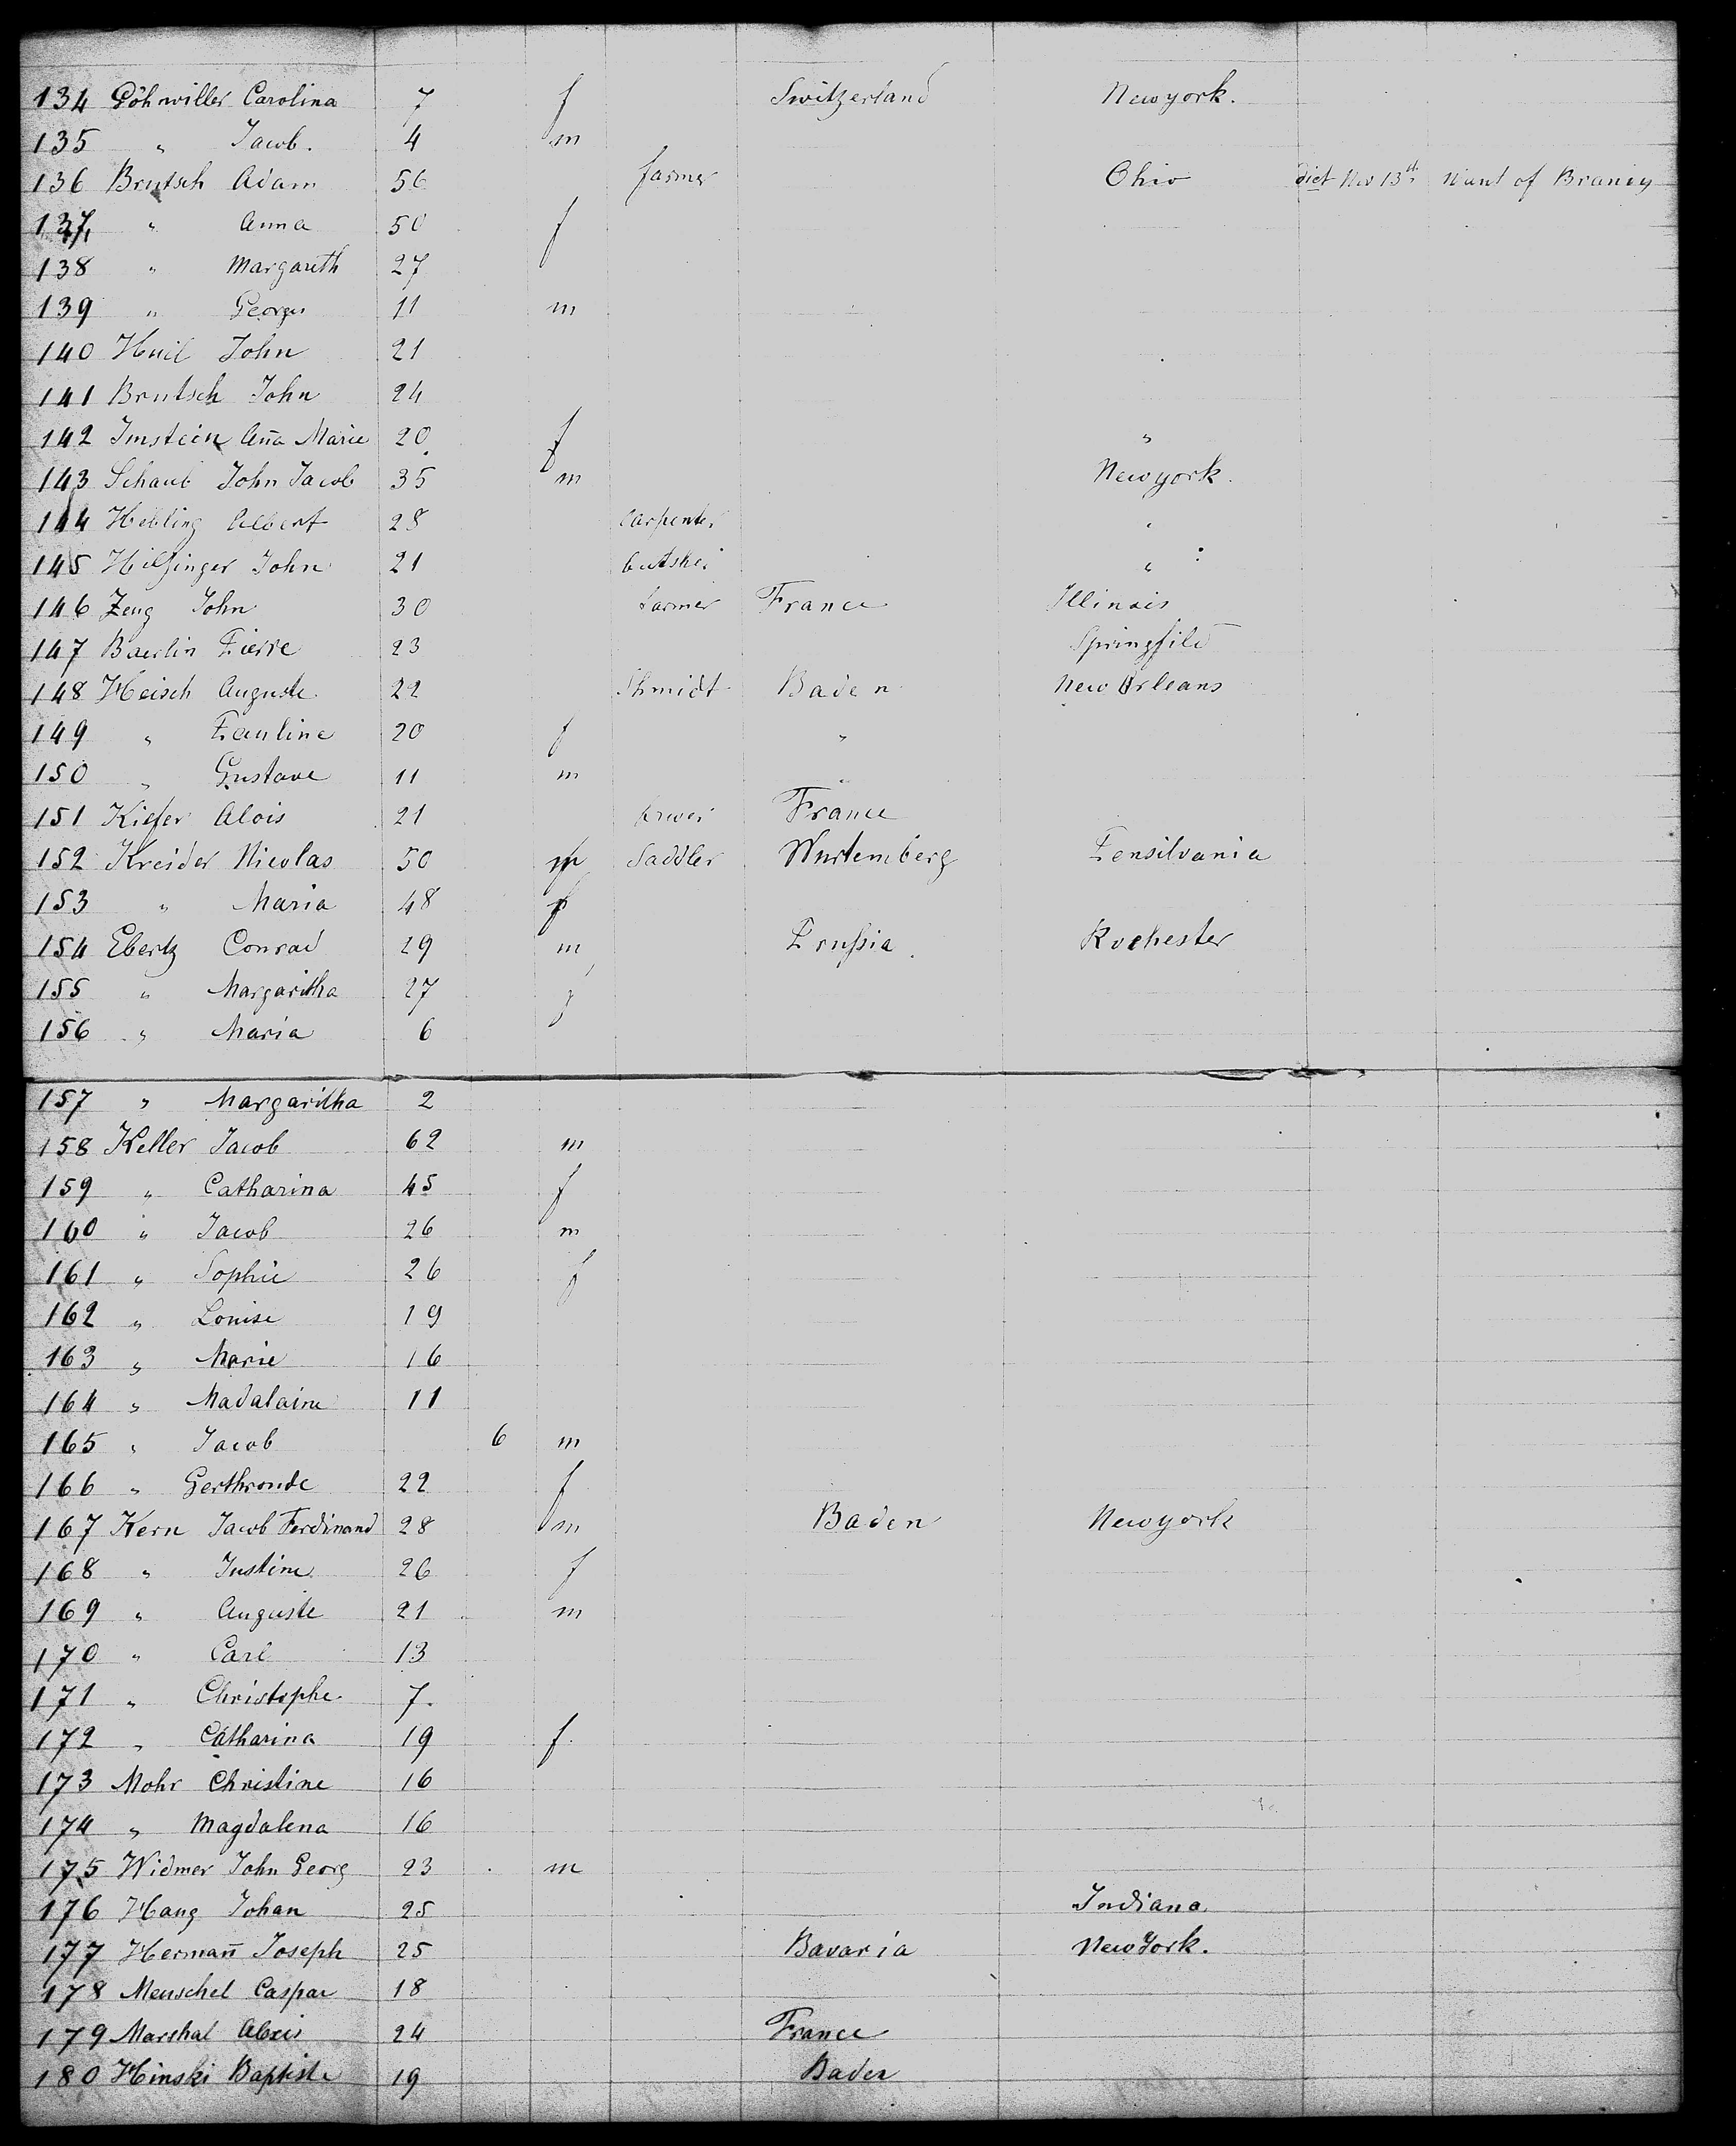 134 Göhwiller Carolina 7 f Switzerland Newyork.
135 " Jacob. 4 m
136 Brutsch Adam 56 farmer Ohio diet Nov 13th Want of Brandy
137 " Anna 50 f
138 " Margareth 27
139 " Georges 11 m
140 John 21
141 Brutsch John 24
142 Imstein Aña Marie 20 f "
143 Schaub John Jacob 35 m Newyork.
144 Hebling Albert 28 Carpenter "
145 Hilfinger John 21 "
146 Zeug John 30 farmer France Illinois
147 Baerlin Pierre 23 Springfild
148 Heisch Auguste 22 Shmidt Baden New Orleans
149 " Pauline 20 f "
150 " Gustave 11 m "
151 Kiefer Alois 21 brwer France
152 Kreider Nicolas 50 m Saddler Wurtemberg Pensilvania
153 " Maria 48 f
154 Ebertz Conrad 29 m Prussia. Rochester
155 " Margaritha 27 f
156 " Maria 6
157 " Margaritha 2
158 Keller Jacob 62 m
159 " Catharina 45 f
160 " Jacob 26 m
161 " Sophie 26 f
162 " Louise 19
163 " Marie 16
164 " Madalaine 11
165 " Jacob 6 m
166 " Gerthroude 22 f
167 Kern Jacob Ferdinand 28 m Baden Newyork
168 " Justine 26 f
169 " Auguste 21 m
170 " Carl 13
171 " Christophe 7.
172 " Catharina 19 f.
173 Mohr Christine 16
174 " Magdalena 16
175 Widmer John Georg 23 m
176 Haug Johan 25 Indiana
177 Hermañ Joseph 25 Bavaria New York.
178 Meuschel Caspar 18
179 Marshal Alexis 24 France
180 Hinski Baptiste 19 Baden